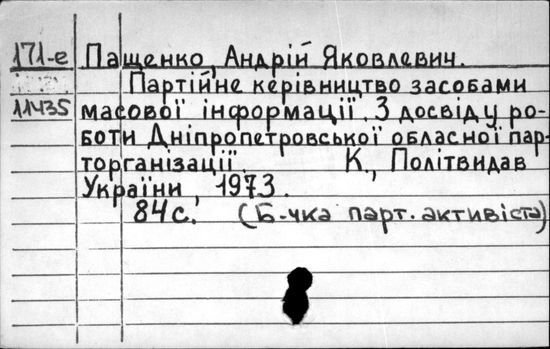 171-е Пащенко, Андрій Яковлевич.
Партійне керівництво засобами
11435 масової інформації. З досвіду ро-
боти Дніпропетровської обласної пар-
торганізації. К., Політвидав
України, 1973.
84с. (Б-чка парт. активіста)